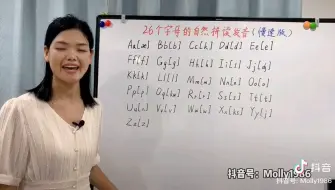 26个字母的自然拼读发音(慢速版)
Aa[æ] Bb[b] Cc[k] Dd[d] Ee[e]
Ff[f] Gg[g] Hh[h] Ii[i] Jj[dʒ]
Kk[k] Ll[l] Mm[m] Nn[n] Oo[ɒ]
Pp[p] Qq[kw] Rr[r] Ss[s] Tt[t]
Uu[ʌ] Vv[v] Ww[w] Xx[ks] Yy[j]
Zz[z]
抖音号:Molly1986
抖音
抖音号: Molly1986